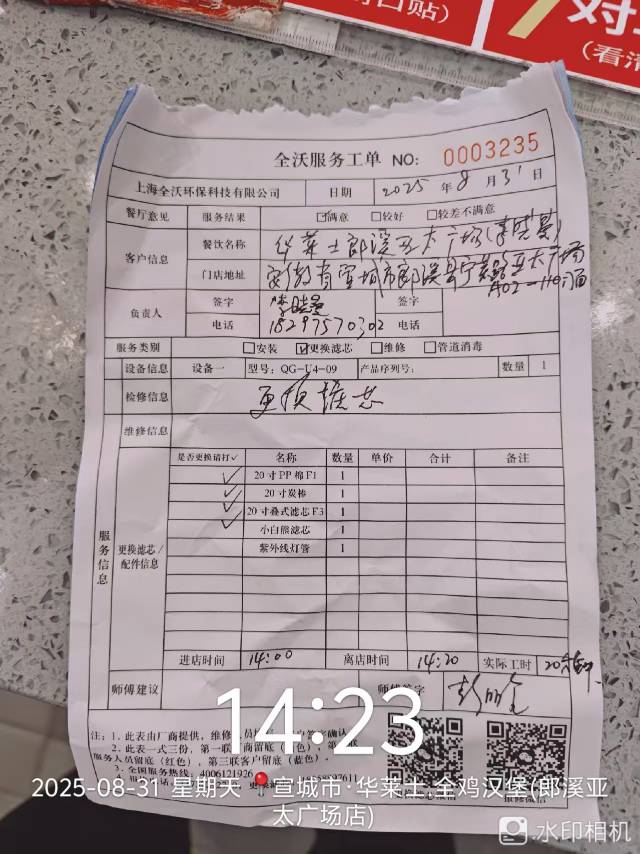 对
(看清
全沃服务工单 NO: 0003235
上海全沃环保科技有限公司 日期 2025 年 8 月 31 日
餐厅意见 服务结果 ☑满意 □较好 □较差不满意
客户信息 餐饮名称 华莱士郎溪亚太广场(李晓曼)
门店地址 安徽省宣城市郎溪县宁 路亚太广场
A02-110 铺
负责人 签字 李晓曼 签字
电话 18297570302 电话
服务类别 □安装 ☑更换滤芯 □维修 □管道消毒
设备信息 设备一 型号: QG-U4-09 产品序列号: 数量 1
检修信息 更换滤芯
维修信息
服务信息 更换滤芯/配件信息
是否更换请打✓ 名称 数量 单价 合计 备注
✓ 20寸PP棉F1 1
✓ 20寸炭棒 1
✓ 20寸叠式滤芯F3 1
✓ 小白熊滤芯 1
紫外线灯管 1
进店时间 14:00 离店时间 14:20 实际工时 20分钟
师傅建议 师傅签字
注: 1. 此表由厂商提供, 维修 确认
2. 此表一式三份, 第一联 商留底 第
服务人员留底 (红色), 第三联客户留底 (蓝色).
3. 全国服务热线: 4006121926
14:23
2025-08-31 星期天 宣城市·华莱士.全鸡汉堡(郎溪亚
太广场店)
水印相机